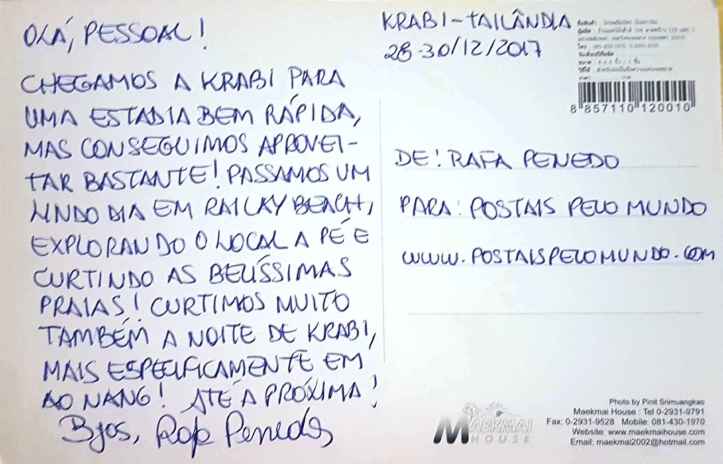 OLÁ, PESSOAL!
CHEGAMOS A KRABI PARA
UMA ESTADIA BEM RÁPIDA,
MAS CONSEGUIMOS APROVEI-
TAR BASTANTE! PASSAMOS UM
LINDO DIA EM RAILAY BEACH,
EXPLORANDO O LOCAL A PÉ E
CURTINDO AS BELÍSSIMAS
PRAIAS! CURTIMOS MUITO
TAMBÉM A NOITE DE KRABI,
MAIS ESPECIFICAMENTE EM
AO NANG! ATÉ A PRÓXIMA!
Bjos, Rafa Penedo
KRABI-TAILÂNDIA
28-30/12/2017
8 857110 120010
DE: RAFA PENEDO
PARA: POSTAIS PELO MUNDO
WWW.POSTAISPELOMUNDO.COM
MAEKMAI
HOUSE
Photo by Pinit Srimuangkas
Maekmai House : Tel 0-2931-9791
Fax: 0-2931-9528 Mobile: 081-430-1970
Website: www.maekmaihouse.com
Email: maekmai2002@hotmail.com